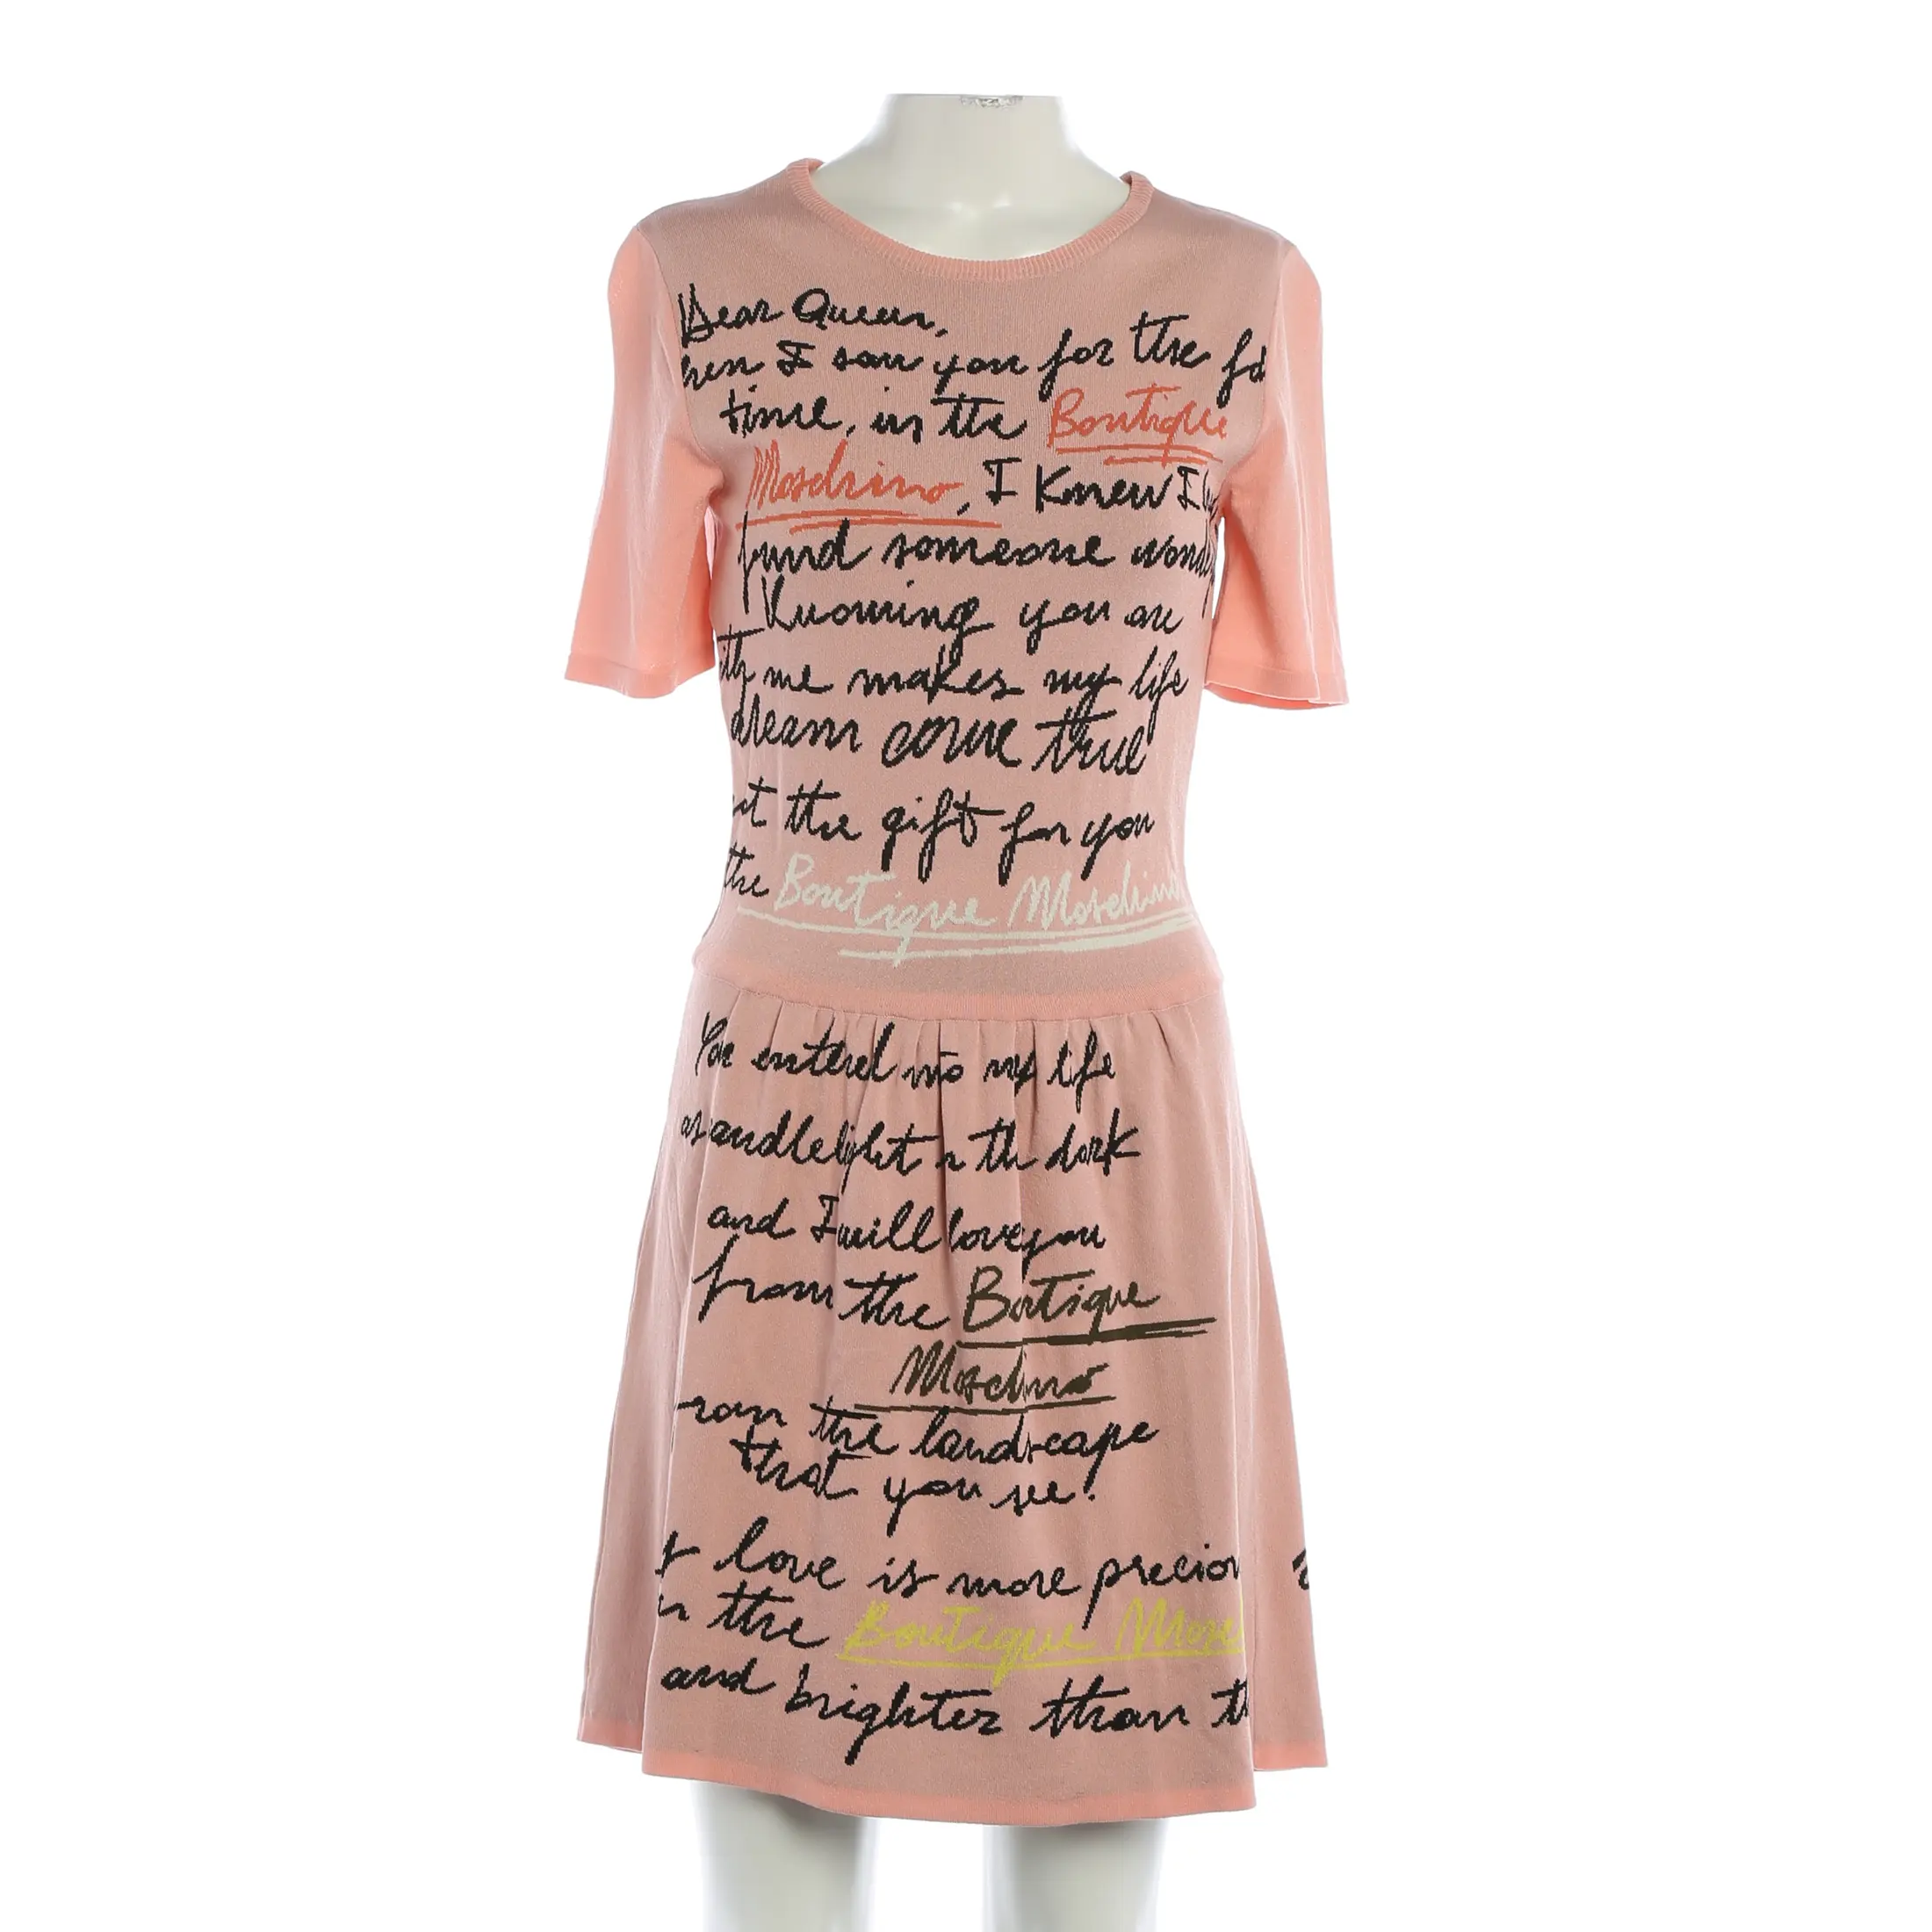 Dear Queen,
hen I saw you for the fi
time, in the Boutique
Moschino, I Knew I ha
found someone wonde
Knowing you are
ith me makes my life
dream come true
ut the gift for you
the Boutique Moschino
You entered into my life
as candlelight in the dark
and I will love you
from the Boutique
Moschino
rom the landscape
that you see!
love is more preciou
in the Boutique Mosc
and brighter than th